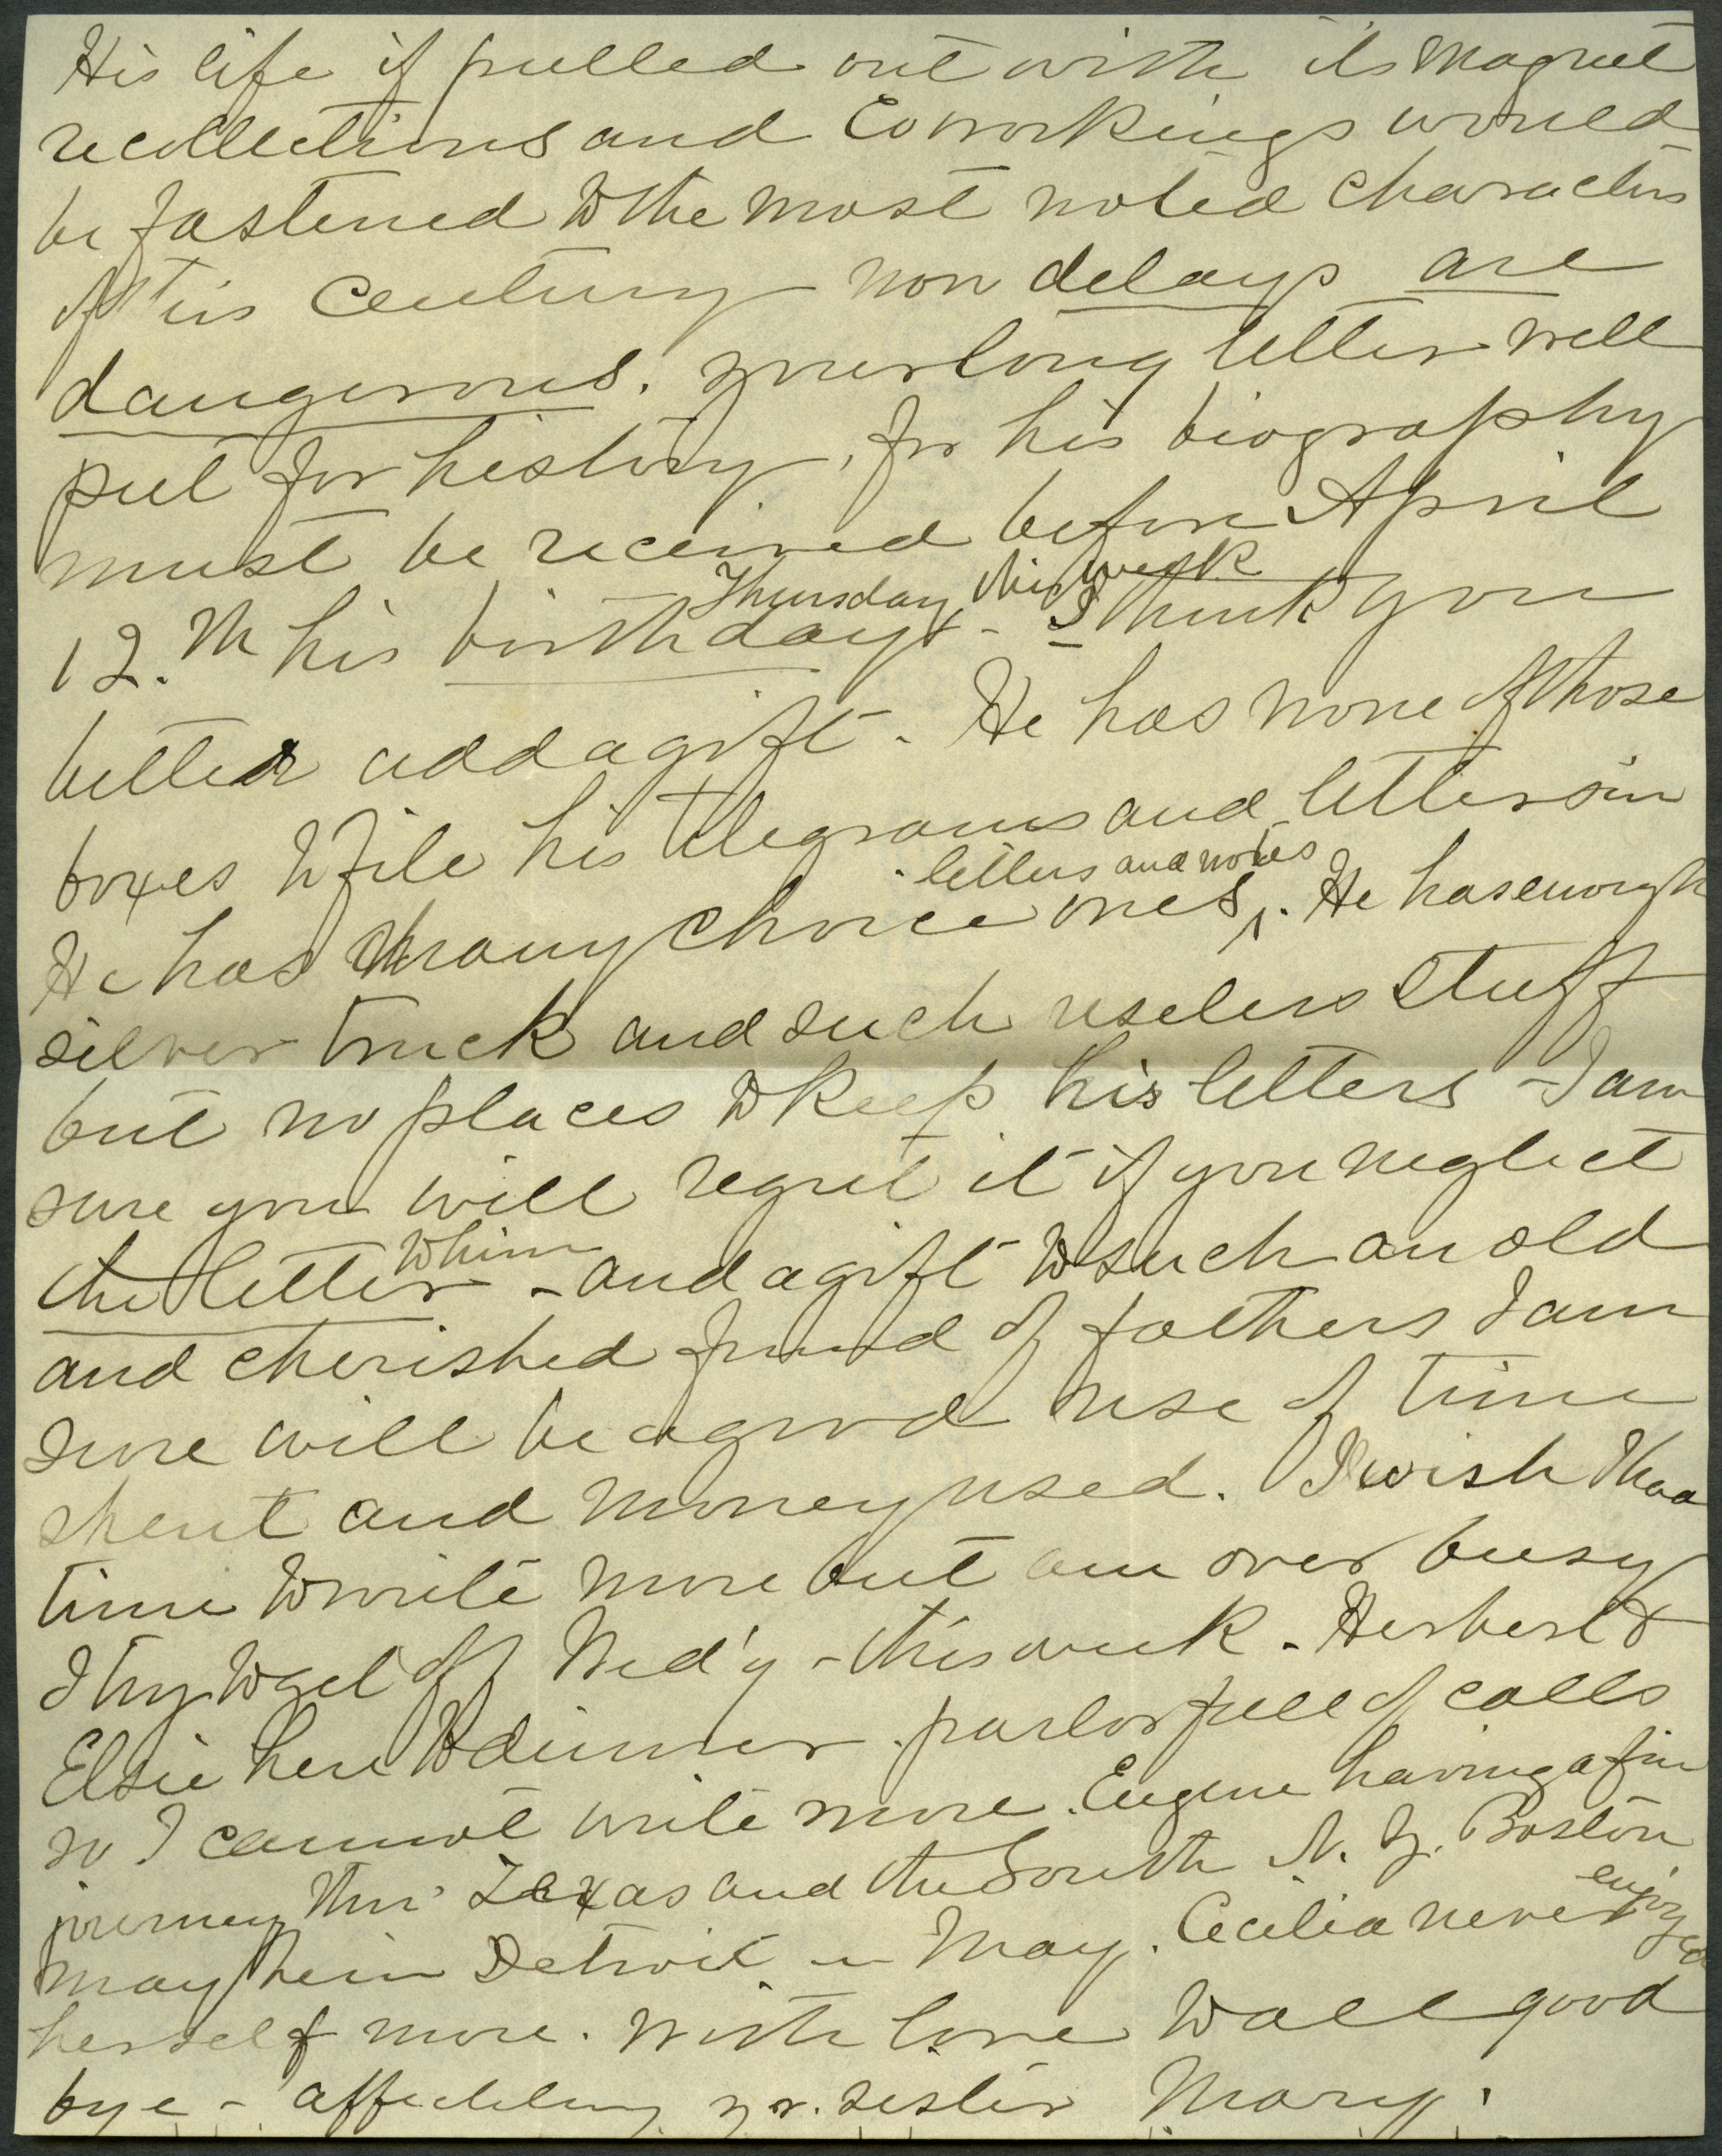 His life if pulled out with its magnet
recollections and Coworkings would
be fastened to the most noted characters
of this Century now delays are
dangerous. your long letter well
put for history, for his biography
must be received before April
Thursday this week
12.th his birthday - I think you
better add a gift - He has none of those
boxes to file his telegrams and letters in
letters and notes
He has many choice ones. He has enough
silver truck and such useless stuff
but no places to keep his letters - I am
sure you will regret it if you neglect
to him
the letter - and a gift to such an old
and cherished friend of fathers I am
sure will be a good use of time
spent and money used. I wish I had
time to write more but am over busy
I try to get off Wed'y - this week - Herbert &
Elsie here to dinner. parlor full of calls
so I cannot write more. Eugene having a fine
journey thro' Texas and the South N. Y. Boston
may be in Detroit in May. Cecilia never enjoyed
herself more. With love to all good
bye - affectely yr. sister Mary.